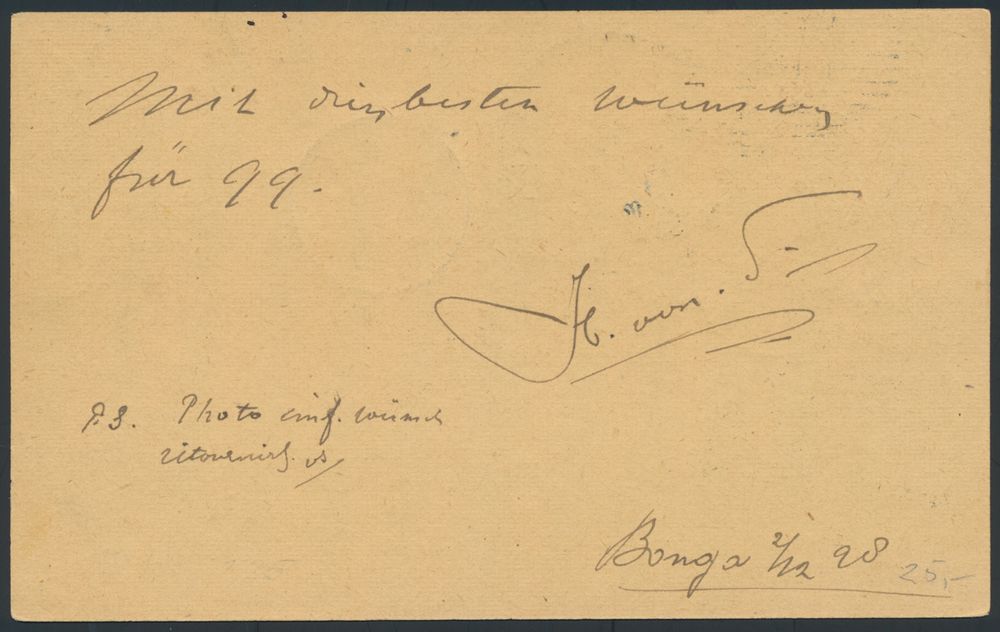 Mit den besten wünschen
für 99.
H. von. S
P.S. Photo empf. wünsch
retournirt.
Bonga 2/12 98
25,-